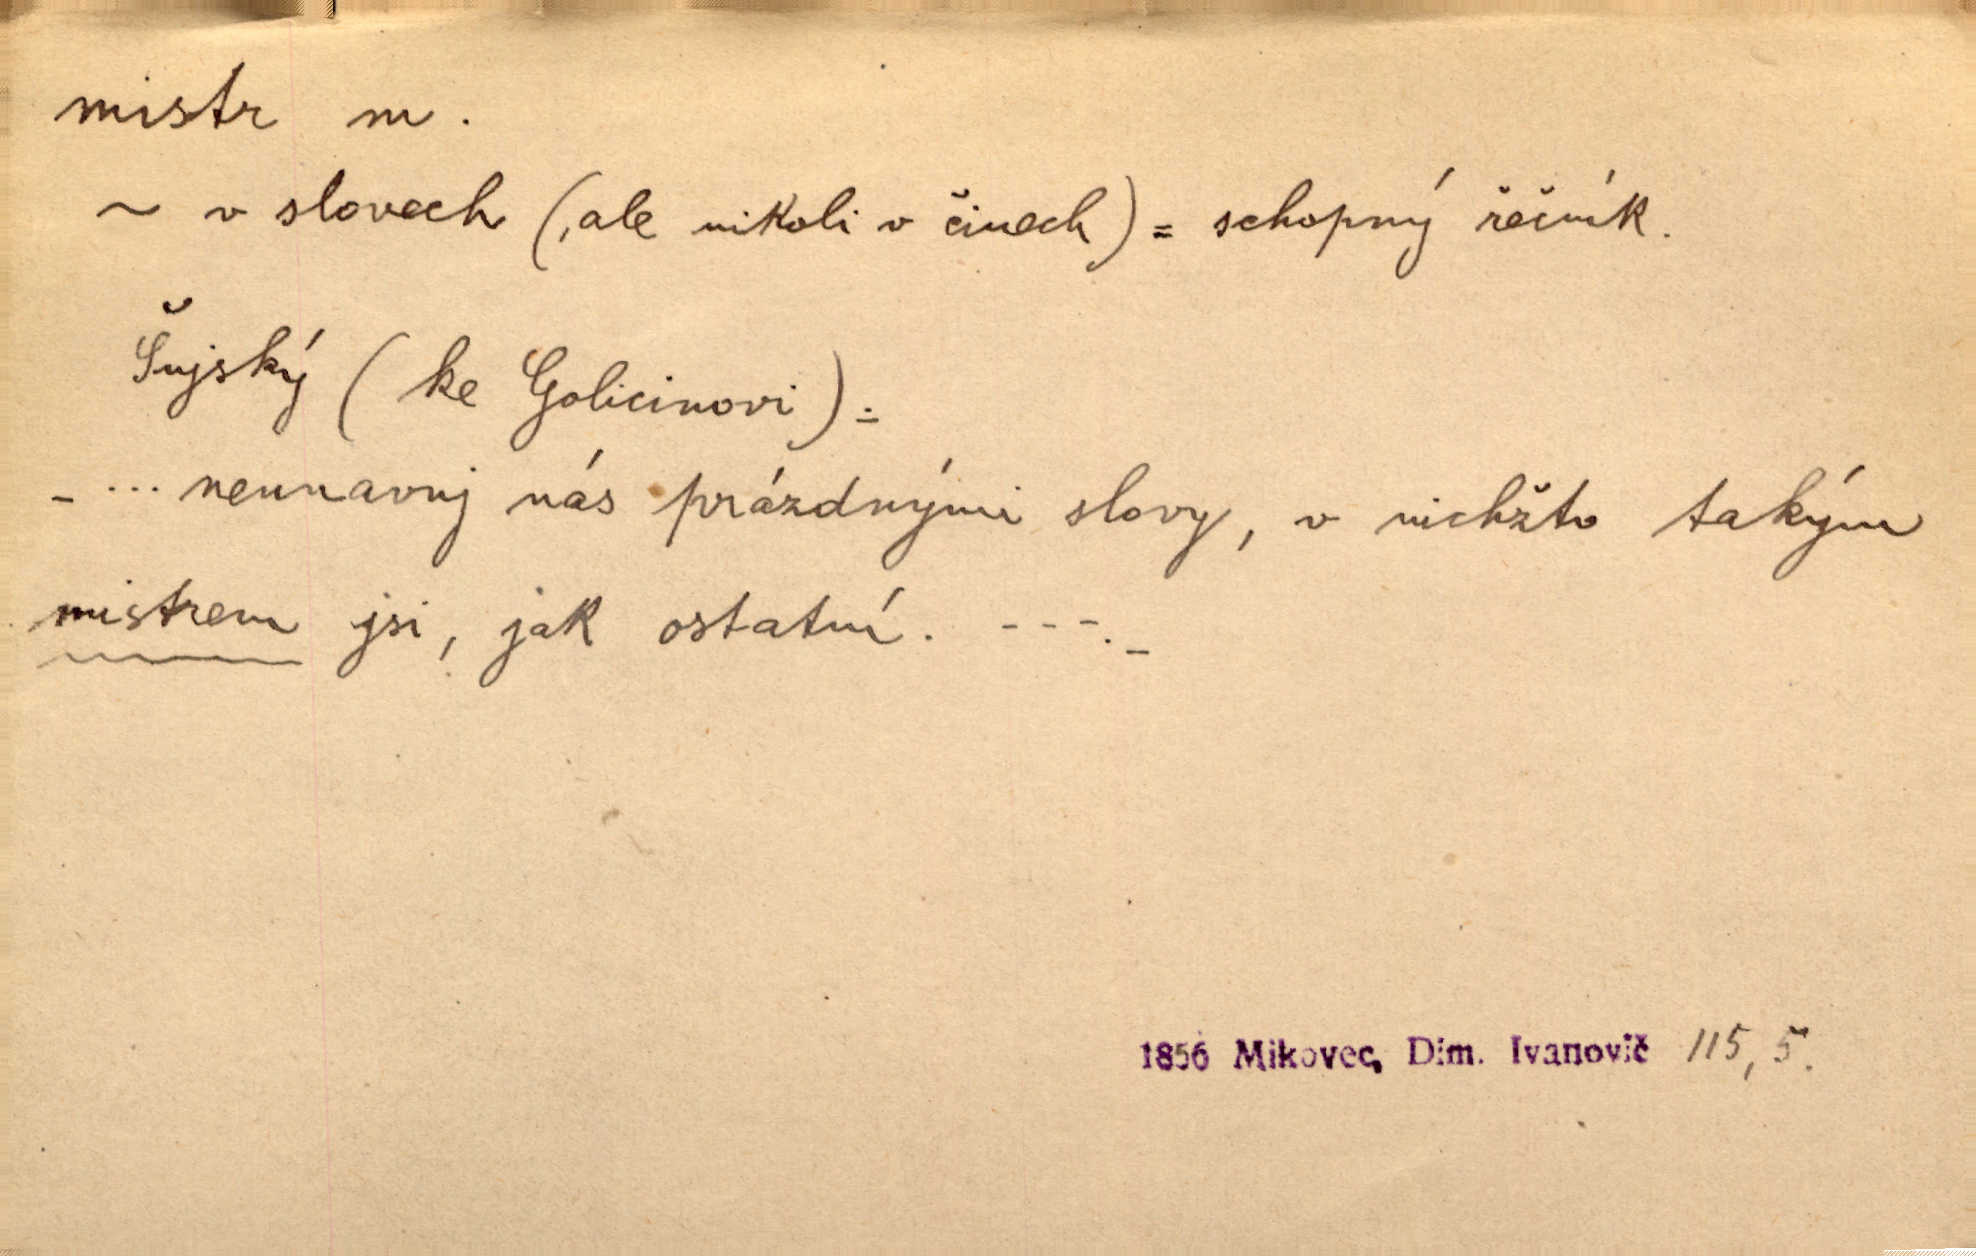 mistr m.
~ v slovech (, ale nikoli v činech) = schopný řečník.
Šujský (ke Golicinovi):
- ... neunavuj nás prázdnými slovy, v nichžto takým
mistrem jsi, jak ostatní. ---. -
1856 Mikovec, Dim. Ivanovič 115, 5.